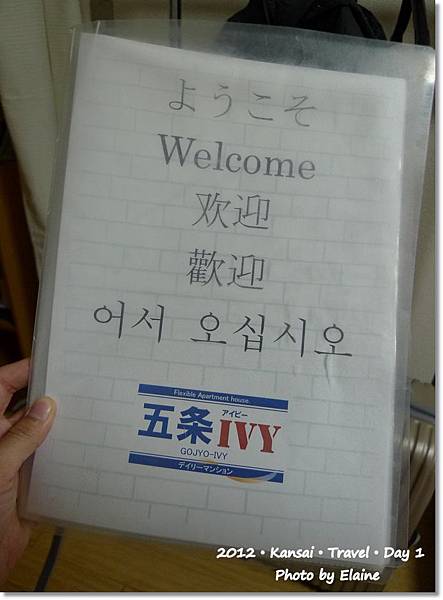 ようこそ
Welcome
欢迎
歡迎
어서 오십시오
Flexible Apartment house
アイビー
五条IVY
GOJYO-IVY
デイリーマンション
2012・Kansai・Travel・Day 1
Photo by Elaine